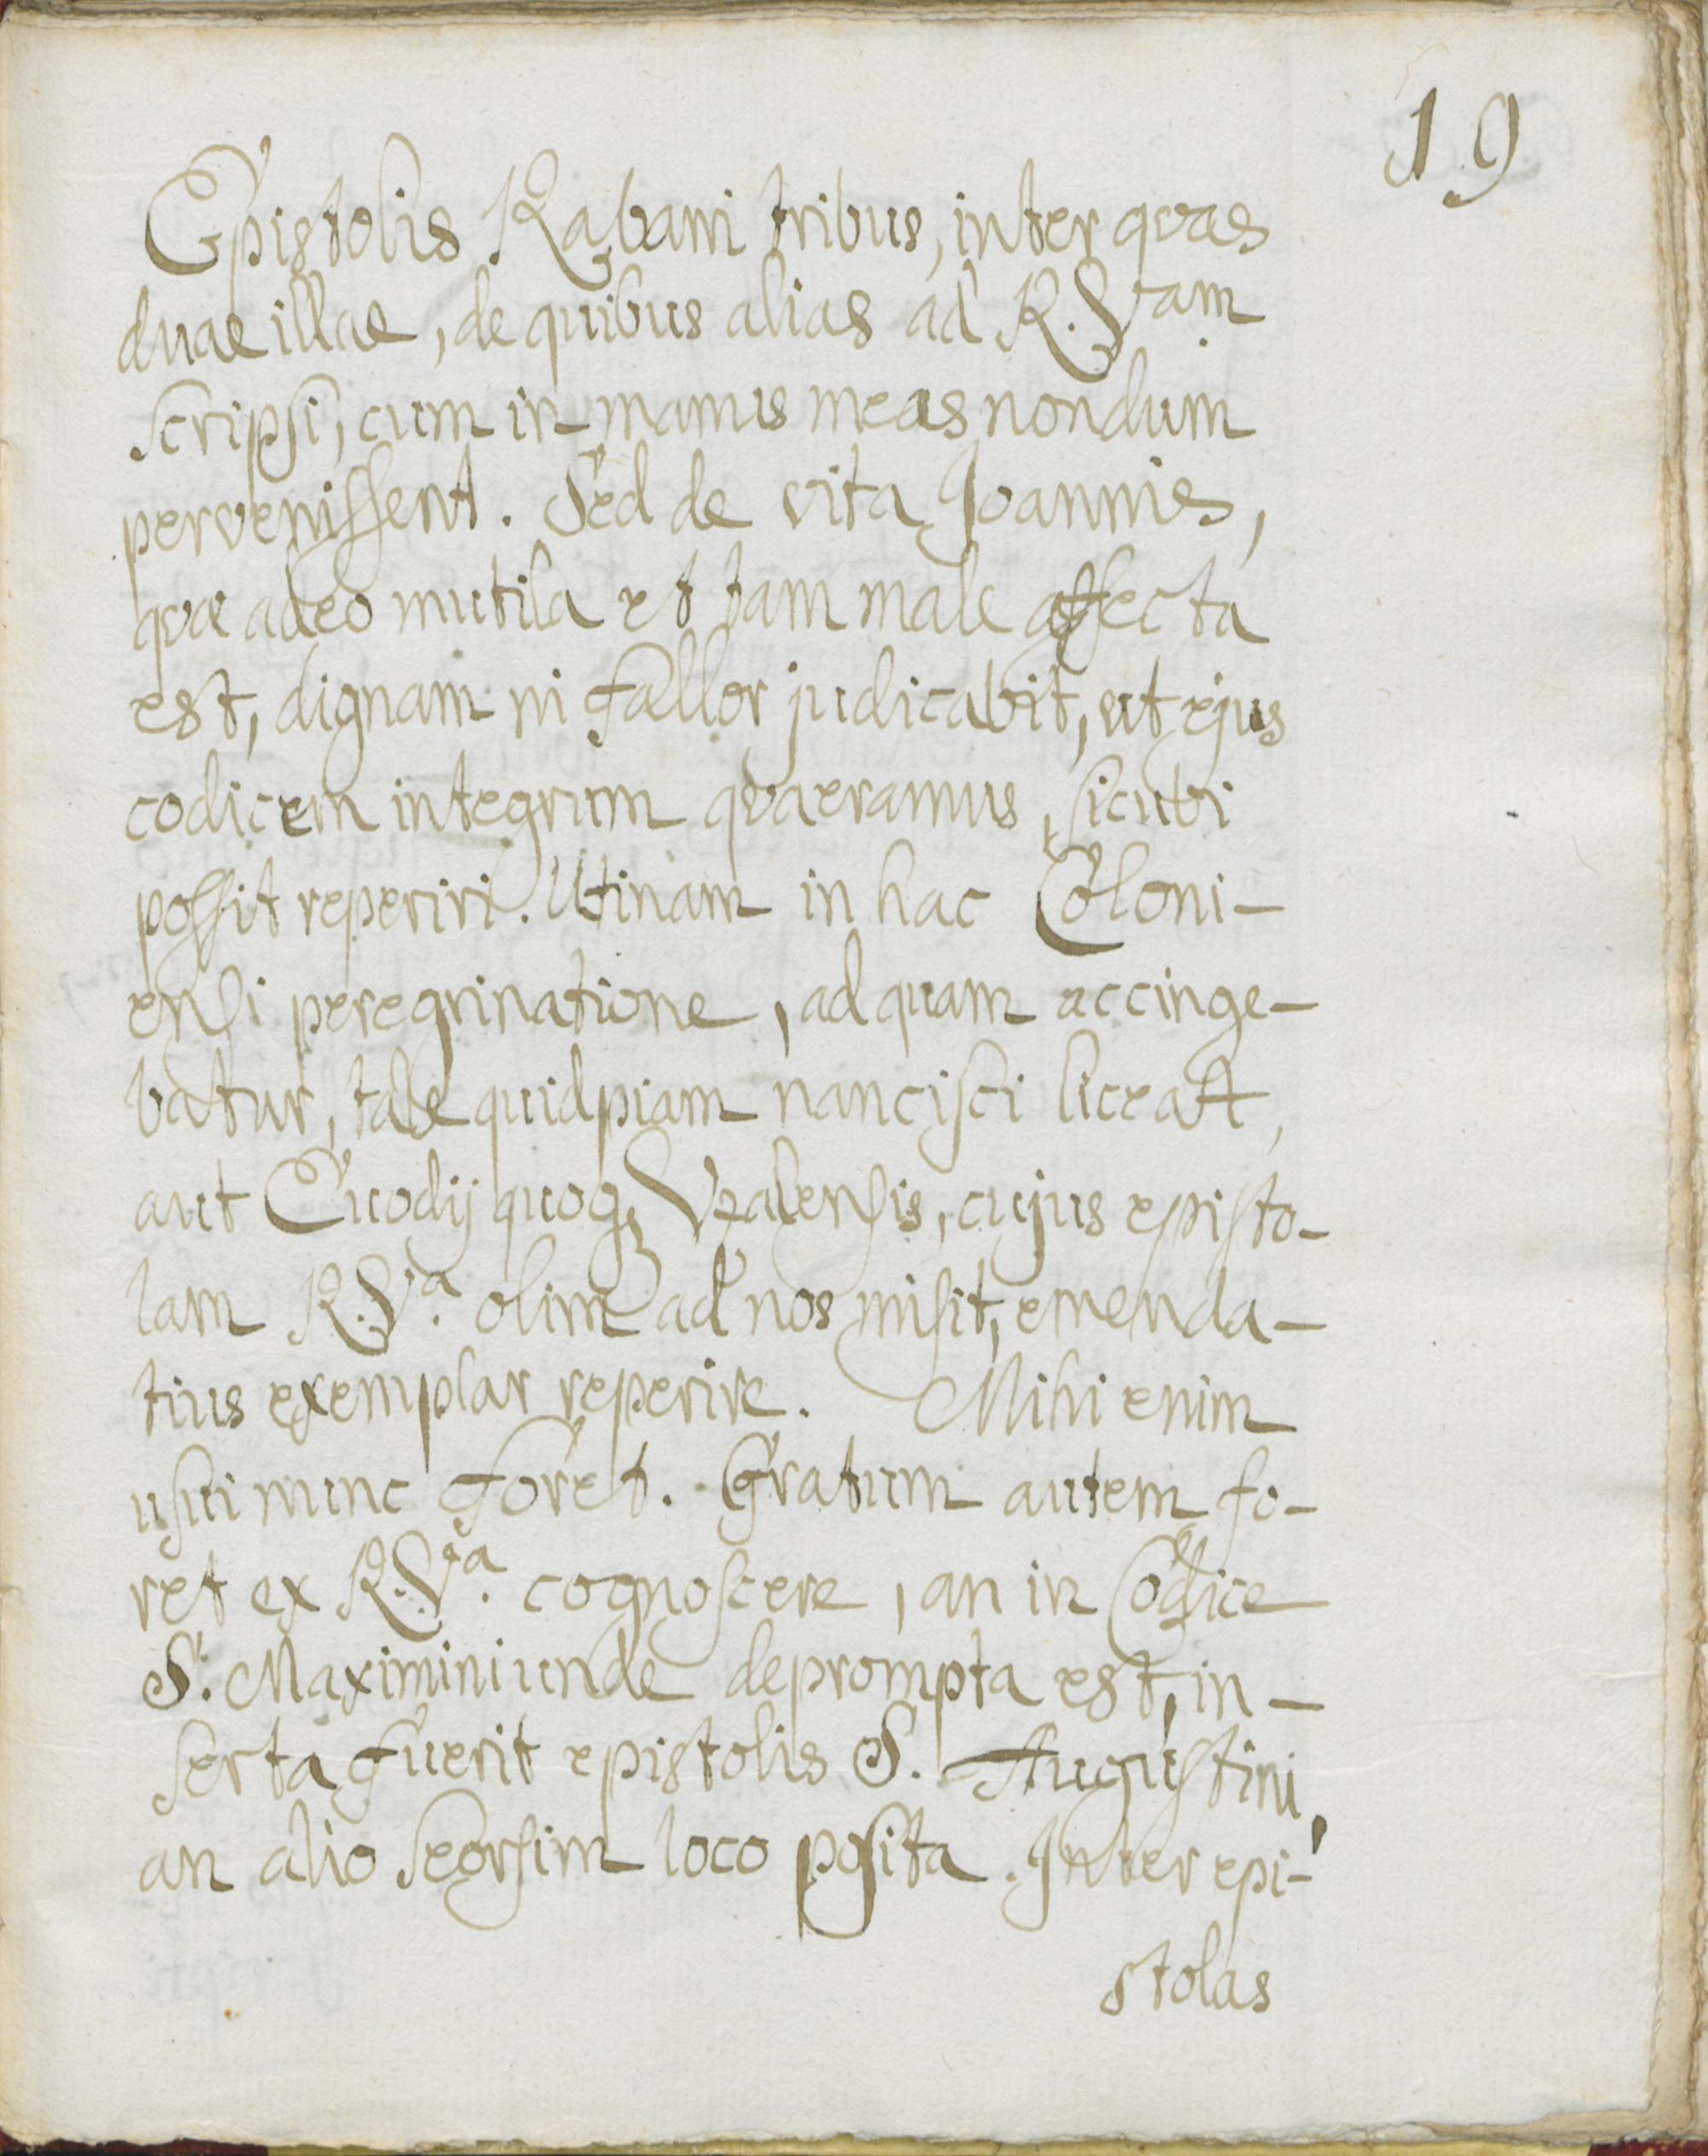 19
Epistolis Rabani tribus, inter quas
duae illae, de quibus alias ad R.Vam.
scripsi, cum in manus meas nondum
pervenissent. Sed de vita Joannis,
quae adeo mutila et tam male affecta
est, dignam ni fallor judicabit, ut ejus
codicem integrum quaeramus, sicubi
possit reperiri. Utinam in hac Coloni-
ensi peregrinatione, ad quam accinge-
batur, tale quidpiam nancisci liceat,
aut Evodij quoq; Uzalensis, cujus episto-
lam R.Va. olim ad nos misit, emenda-
tius exemplar reperire. Mihi enim
usui nunc foret. Gratum autem fo-
ret ex R.Va. cognoscere, an in Codice
S. Maximini unde deprompta est, in-
serta fuerit epistolis S. Augustini,
an alio seorsim loco posita. Inter epi-
stolas